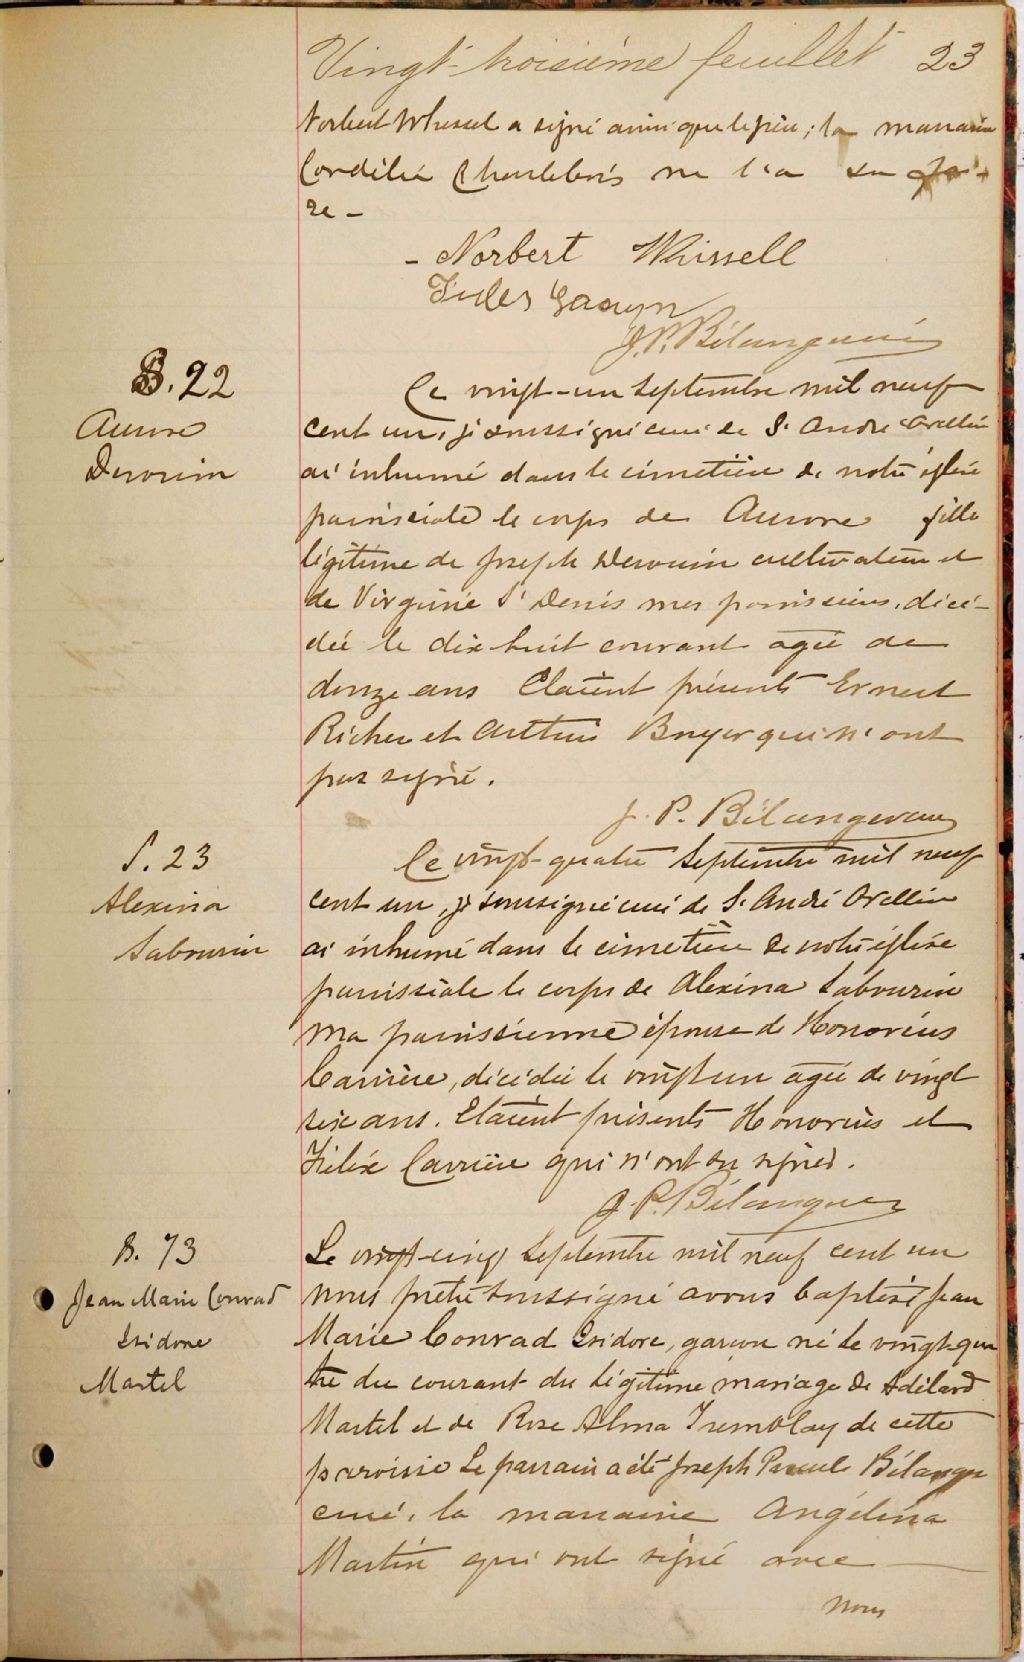 Vingt-troisième feuillet 23
Norbert Whissel a signé ainsi que le père ; la marraine
Cordélie Charlebois ne l'a su fai-
re -
- Norbert Whissell
Jules
J. P. Bélanger curé
S. 22
Aurore
Derouin
Le vingt-un Septembre mil neuf
cent un, je soussigné curé de St André Avellin
ai inhumé dans le cimetière de notre église
paroissiale le corps de Aurore fille
légitime de Joseph Derouin cultivateur et
de Virginie St Denis mes paroissiens, décé-
dée le dix-huit courant agée de
douze ans Etaient présents Ernest
Richer et Arthur Boyer qui n'ont
pas signé.
J. P. Bélanger curé
S. 23
Alexina
Sabourin
Le vingt-quatre Septembre mil neuf
cent un, je soussigné curé de St André Avellin
ai inhumé dans le cimetière de notre église
paroissiale le corps de Alexina Sabourin
ma paroissienne épouse de Honorius
Carrière, décédée le vingt un agée de vingt
six ans. Etaient présents Honorius et
Félix Carrière qui n'ont su signer.
J. P. Bélanger
B. 73
Jean Marie Conrad
Isidore
Martel
Le vingt-cinq Septembre mil neuf cent un
nous prêtre soussigné avons baptisé Jean
Marie Conrad Isidore, garçon né le vingt-qua
tre du courant du légitime mariage de Adélard
Martel et de Rose Alma Tremblay de cette
paroisse Le parrain a été Joseph Bélanger
curé, la marraine Angélina
Martin qui ont signé avec
nous